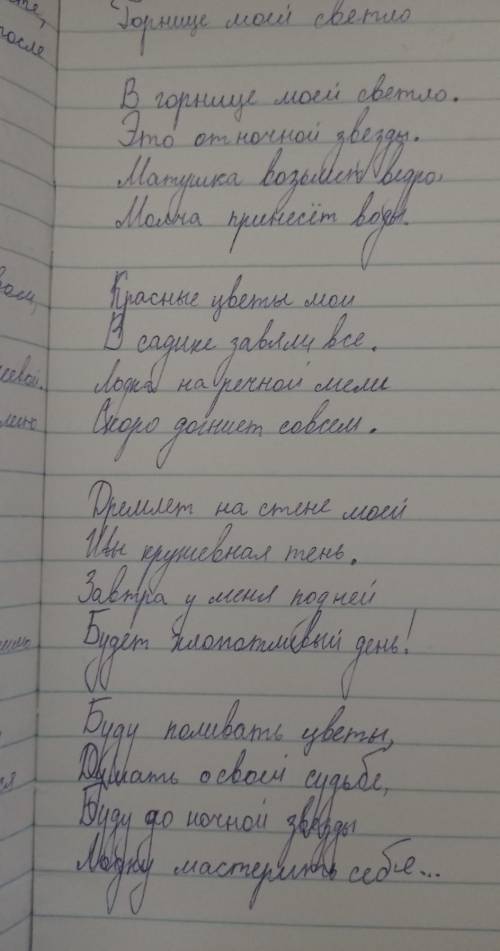 Горнице моей светло
В горнице моей светло.
Это от ночной звезды.
Матушка возьмёт ведро,
Молча принесёт воды.
Красные цветы мои
В садике завяли все.
Лодка на речной мели
Скоро догниет совсем.
Дремлет на стене моей
Ивы кружевная тень.
Завтра у меня подней
Будет хлопотливый день!
Буду поливать цветы,
Думать о своей судьбе,
Буду до ночной звезды
Лодку мастерить себе...